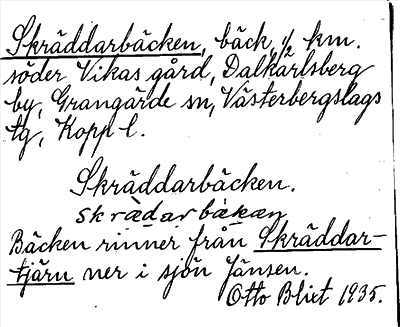 Skräddarbäcken, bäck, ½ km.
söder Vikas gård, Dalkarlsberg
by, Grangärde sn, Västerbergslags
tg, Kopp l.
Skräddarbäcken.
skrädarbäkan
Bäcken rinner från Skräddar-
tjärn ner i sjön Jänsen.
Otto Bliet 1935.